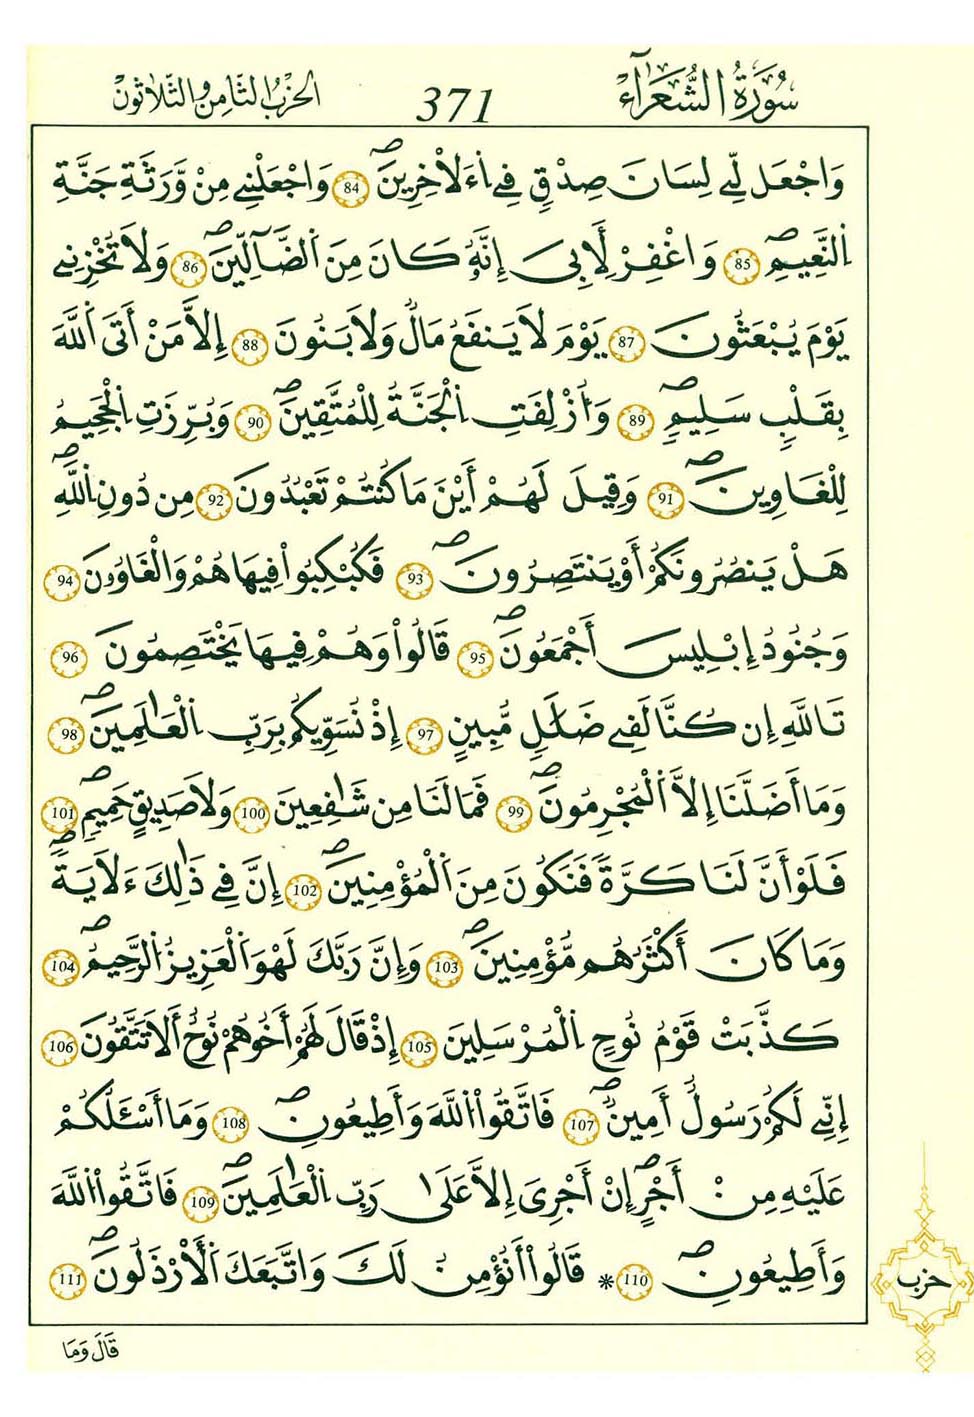 سُورَةُ الشُّعَرَآءِ
371
الحِزْبُ الثَّامِنُ وَالثَّلاَثُونَ
وَاجْعَل لِّے لِسَانَ صِدْقٍ فِے اِ۬ءَلاْخِرِينَۖ 84 وَاجْعَلْنِے مِنْ وَّرَثَةِ جَنَّةِ
اِ۬لنَّعِيمِۖ 85 وَاغْفِرْ لِأَبِىَ إِنَّهُۥ كَانَ مِنَ اَ۬لضَّآلِّينَۖ 86 وَلاَ تُخْزِنِے
يَوْمَ يُبْعَثُونَ 87 يَوْمَ لاَ يَنفَعُ مَالٌ وَلاَ بَنُونَ 88 إِلاَّ مَنْ أَتَى اَ۬للَّهَ
بِقَلْبٍ سَلِيمٍۖ 89 وَأُزْلِفَتِ اِ۬لْجَنَّةُ لِلْمُتَّقِينَۖ 90 وَبُرِّزَتِ اِ۬لْجَحِيمُ
لِلْغَاوِينَۖ 91 وَقِيلَ لَهُمْ أَيْنَ مَا كُنتُمْ تَعْبُدُونَ 92 مِن دُونِ اِ۬للَّهِۖ
هَلْ يَنصُرُونَكُمْ أَوْ يَنتَصِرُونَۖ 93 فَكُبْكِبُواْ فِيهَا هُمْ وَالْغَاوُۥنَ 94
وَجُنُودُ إِبْلِيسَ أَجْمَعُونَۖ 95 قَالُواْ وَهُمْ فِيهَا يَخْتَصِمُونَ 96
تَاللَّهِ إِن كُنَّا لَفِے ضَلَٰلٍ مُّبِينٍ 97 إِذْ نُسَوِّيكُم بِرَبِّ اِ۬لْعَٰلَمِينَۖ 98
وَمَا أَضَلَّنَا إِلاَّ اَ۬لْمُجْرِمُونَۖ 99 فَمَا لَنَا مِن شَٰفِعِينَ 100 وَلاَ صَدِيقٍ حَمِيمٍۖ 101
فَلَوْ أَنَّ لَنَا كَرَّةً فَنَكُونَ مِنَ اَ۬لْمُؤْمِنِينَۖ 102 إِنَّ فِے ذَٰلِكَ ءَلاَيَةًۖ
وَمَا كَانَ أَكْثَرُهُم مُّؤْمِنِينَۖ 103 وَإِنَّ رَبَّكَ لَهْوَ اَ۬لْعَزِيزُ اُ۬لرَّحِيمُۖ 104
كَذَّبَتْ قَوْمُ نُوحٍ اِ۬لْمُرْسَلِينَ 105 إِذْ قَالَ لَهُمْ أَخُوهُمْ نُوحٌ أَلاَ تَتَّقُونَ 106
إِنِّے لَكُمْ رَسُولٌ أَمِينٌۖ 107 فَاتَّقُواْ اُ۬للَّهَ وَأَطِيعُونِۖ 108 وَمَا أَسْـَٔلُكُمْ
عَلَيْهِ مِنْ أَجْرٍۖ إِنْ أَجْرِىَ إِلاَّ عَلَىٰ رَبِّ اِ۬لْعَٰلَمِينَۖ 109 فَاتَّقُواْ اُ۬للَّهَ
وَأَطِيعُونِۖ 110 * قَالُواْ أَنُؤْمِنُ لَكَ وَاتَّبَعَكَ اَ۬لْأَرْذَلُونَۖ 111
حزب
قَالَ وَمَا